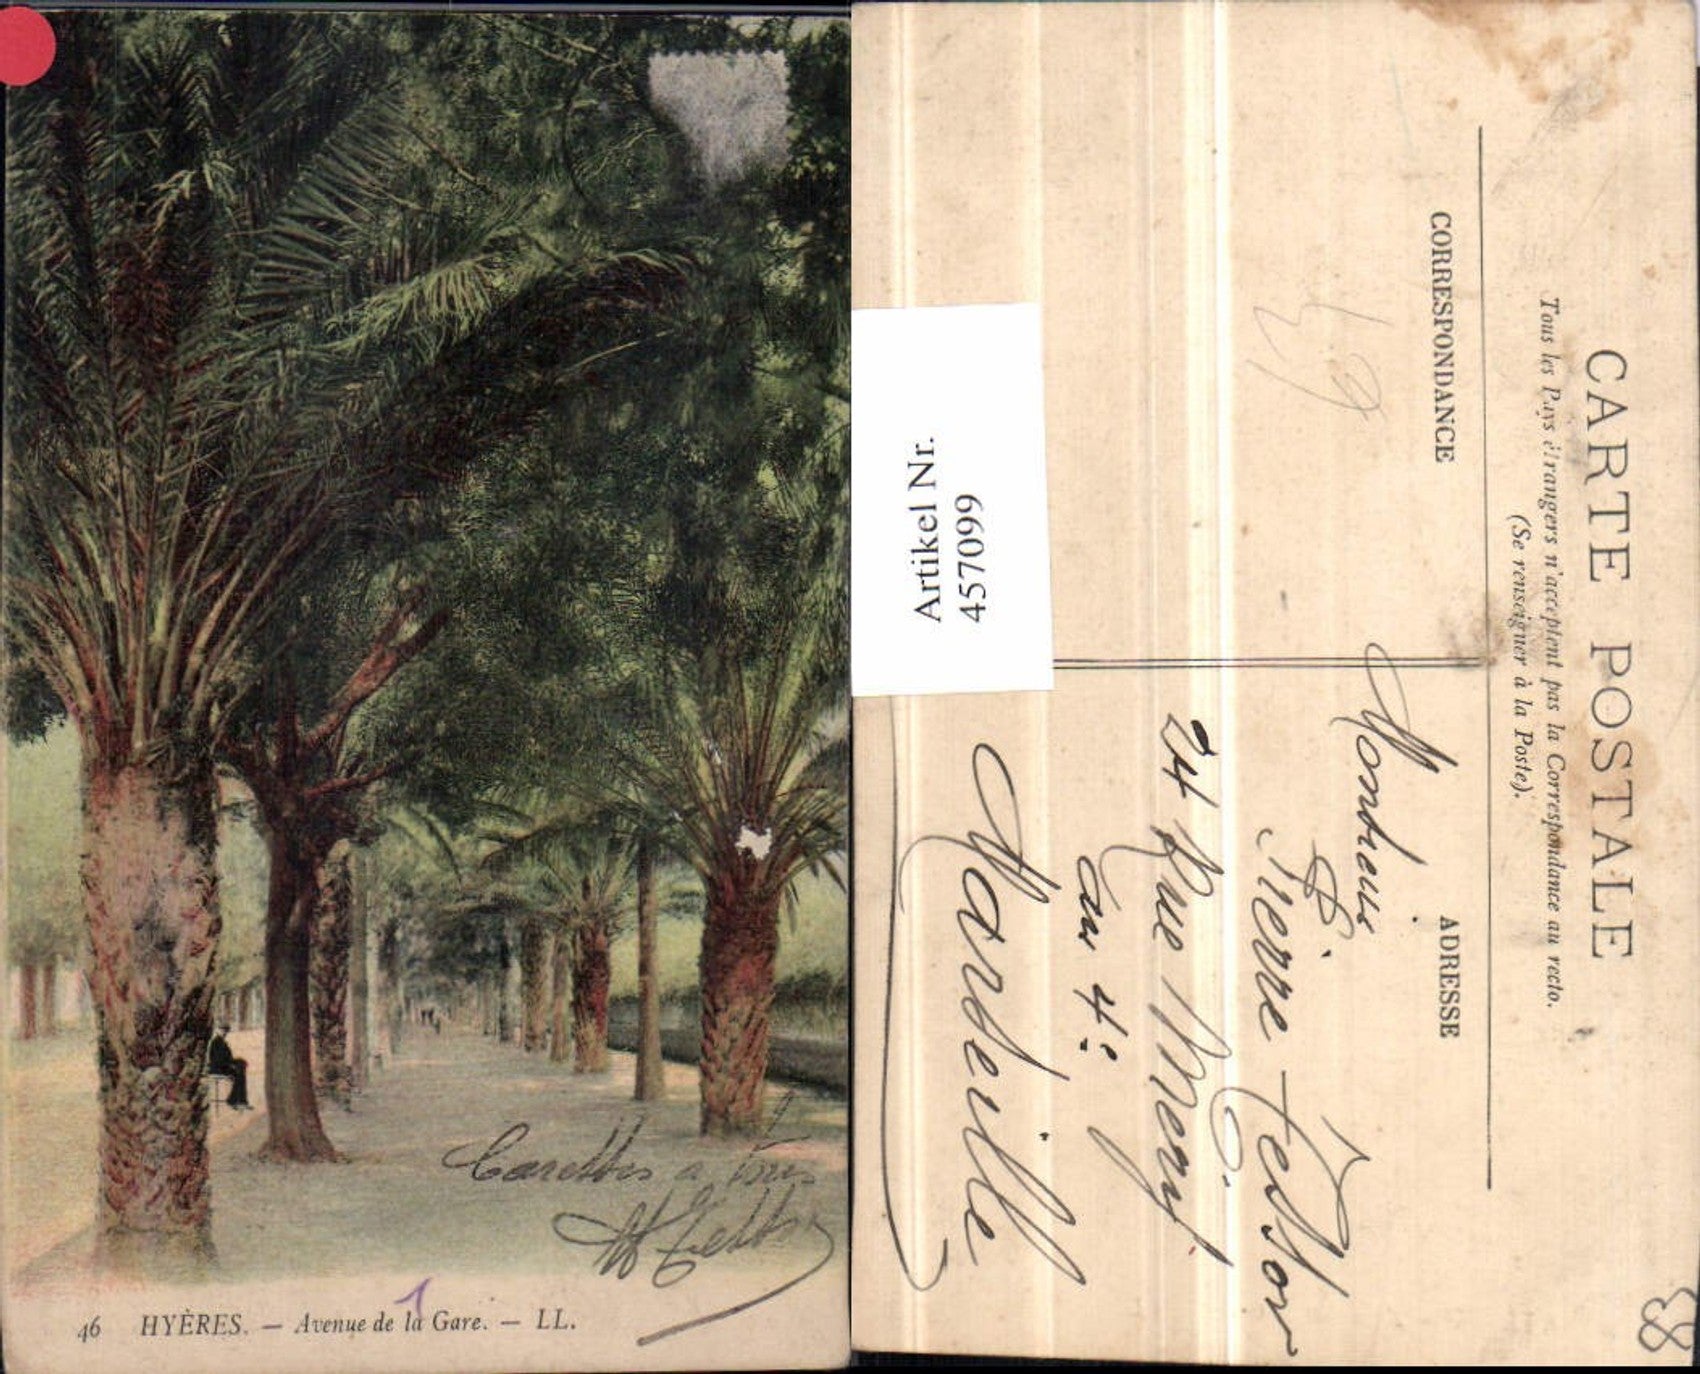 46 HYÈRES. — Avenue de la Gare. — LL.
a
Artikel Nr.
457099
CARTE POSTALE
Tous les Pays étrangers n'acceptent pas la Correspondance au recto.
(Se renseigner à la Poste).
CORRESPONDANCE
ADRESSE
49
Monsieur
Pierre
24 Rue Mery
Marseille
88